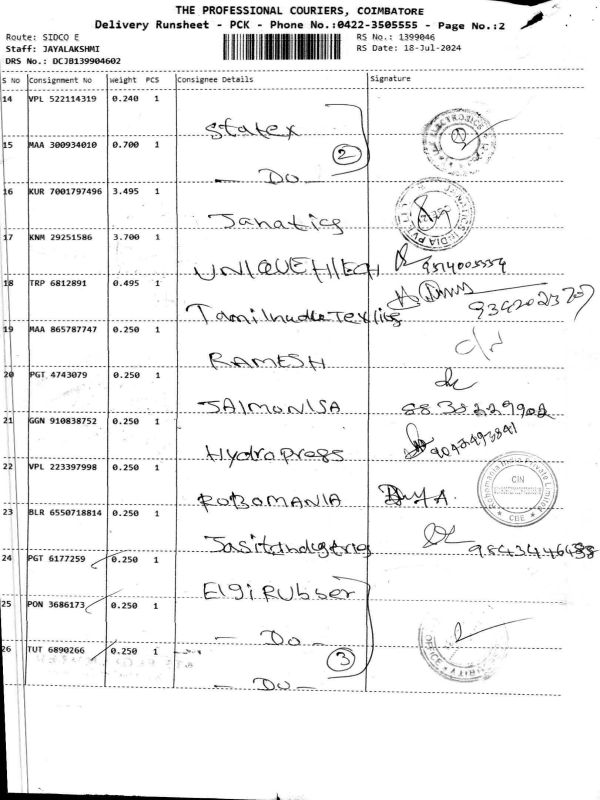 THE PROFESSIONAL COURIERS, COIMBATORE
Delivery Runsheet - PCK - Phone No.:0422-3505555 - Page No.:2
Route: SIDCO E RS No.: 1399046
Staff: JAYALAKSHMI RS Date: 18-Jul-2024
DRS No.: DCJB139904602
S No Consignment No Weight PCS Consignee Details Signature
14 VPL 522114319 0.240 1 Statex
15 MAA 300934010 0.700 1 - Do - 2
16 KUR 7001797496 3.495 1 Janatics
17 KNM 29251586 3.700 1 UNIQUEHITECH
18 TRP 6812891 0.495 1 Tamilnadu Texliis
19 MAA 865787747 0.250 1 RAMESH
20 PGT 4743079 0.250 1 JAIMONISA
21 GGN 910838752 0.250 1 Hydropress 9042493841
22 VPL 223397998 0.250 1 ROBOMANIA
CIN
CBE
23 BLR 6550718814 0.250 1
24 PGT 6177259 0.250 1 Elgi Rubber
25 PON 3686173 0.250 1 - Do -
26 TUT 6890266 0.250 1 - Do - 3